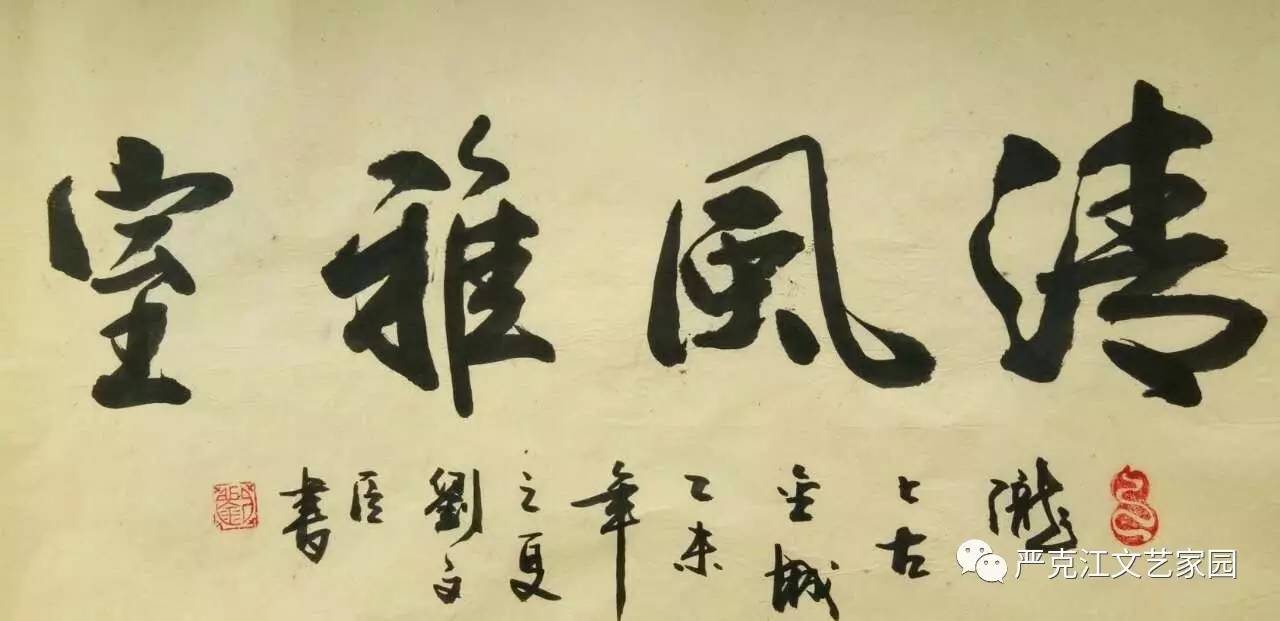 清風雅室
隴上古金城乙未年之夏劉文臣書
严克江文艺家园